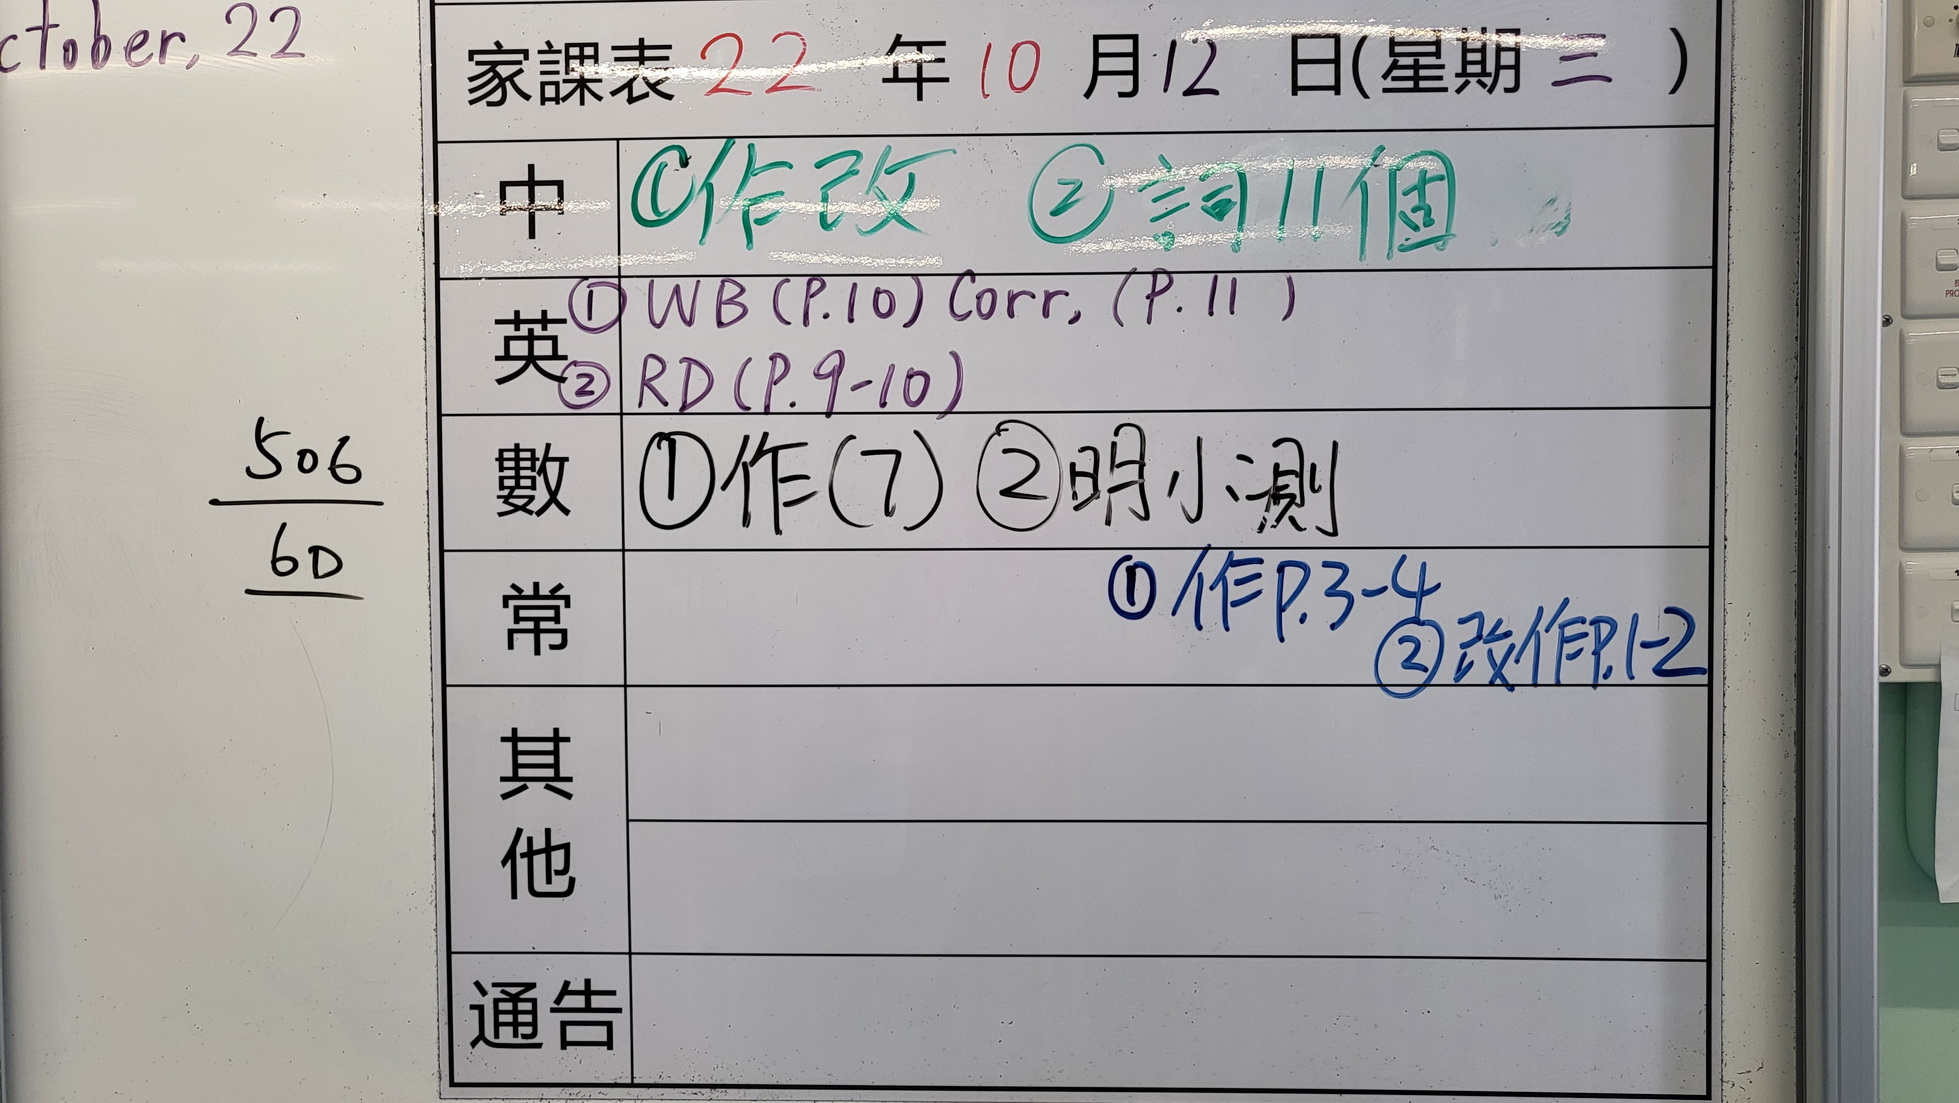 ctober, 22
家課表 22 年 10 月 12 日(星期 三 )
中 ①作改 ②詞11個
英 ① WB (P.10) Corr, (P.11 )
② RD (P.9-10)
數 ①作(7) ②明小測
506
60
常 ① 作P.3-4
② 改作P.1-2
其
他
通告